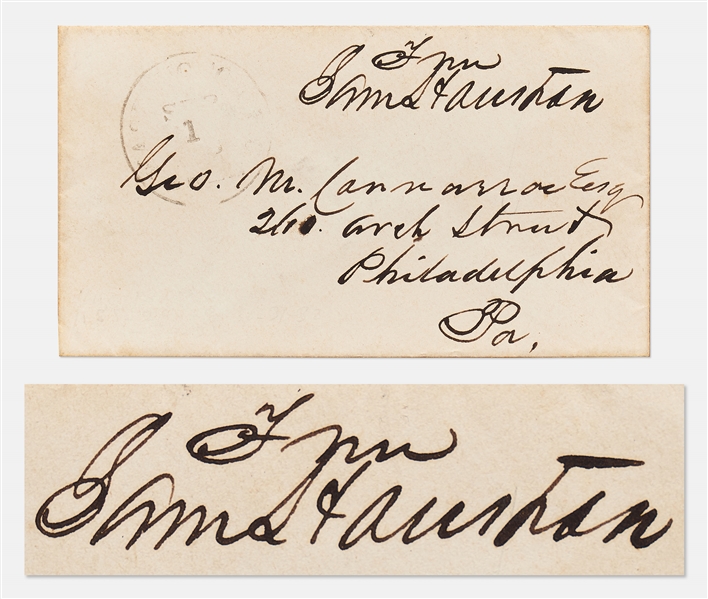 Free
Sam Houston
1
Geo. M. Connarroe Esq
260. Arch Street
Philadelphia
Pa,
Free
Sam Houston